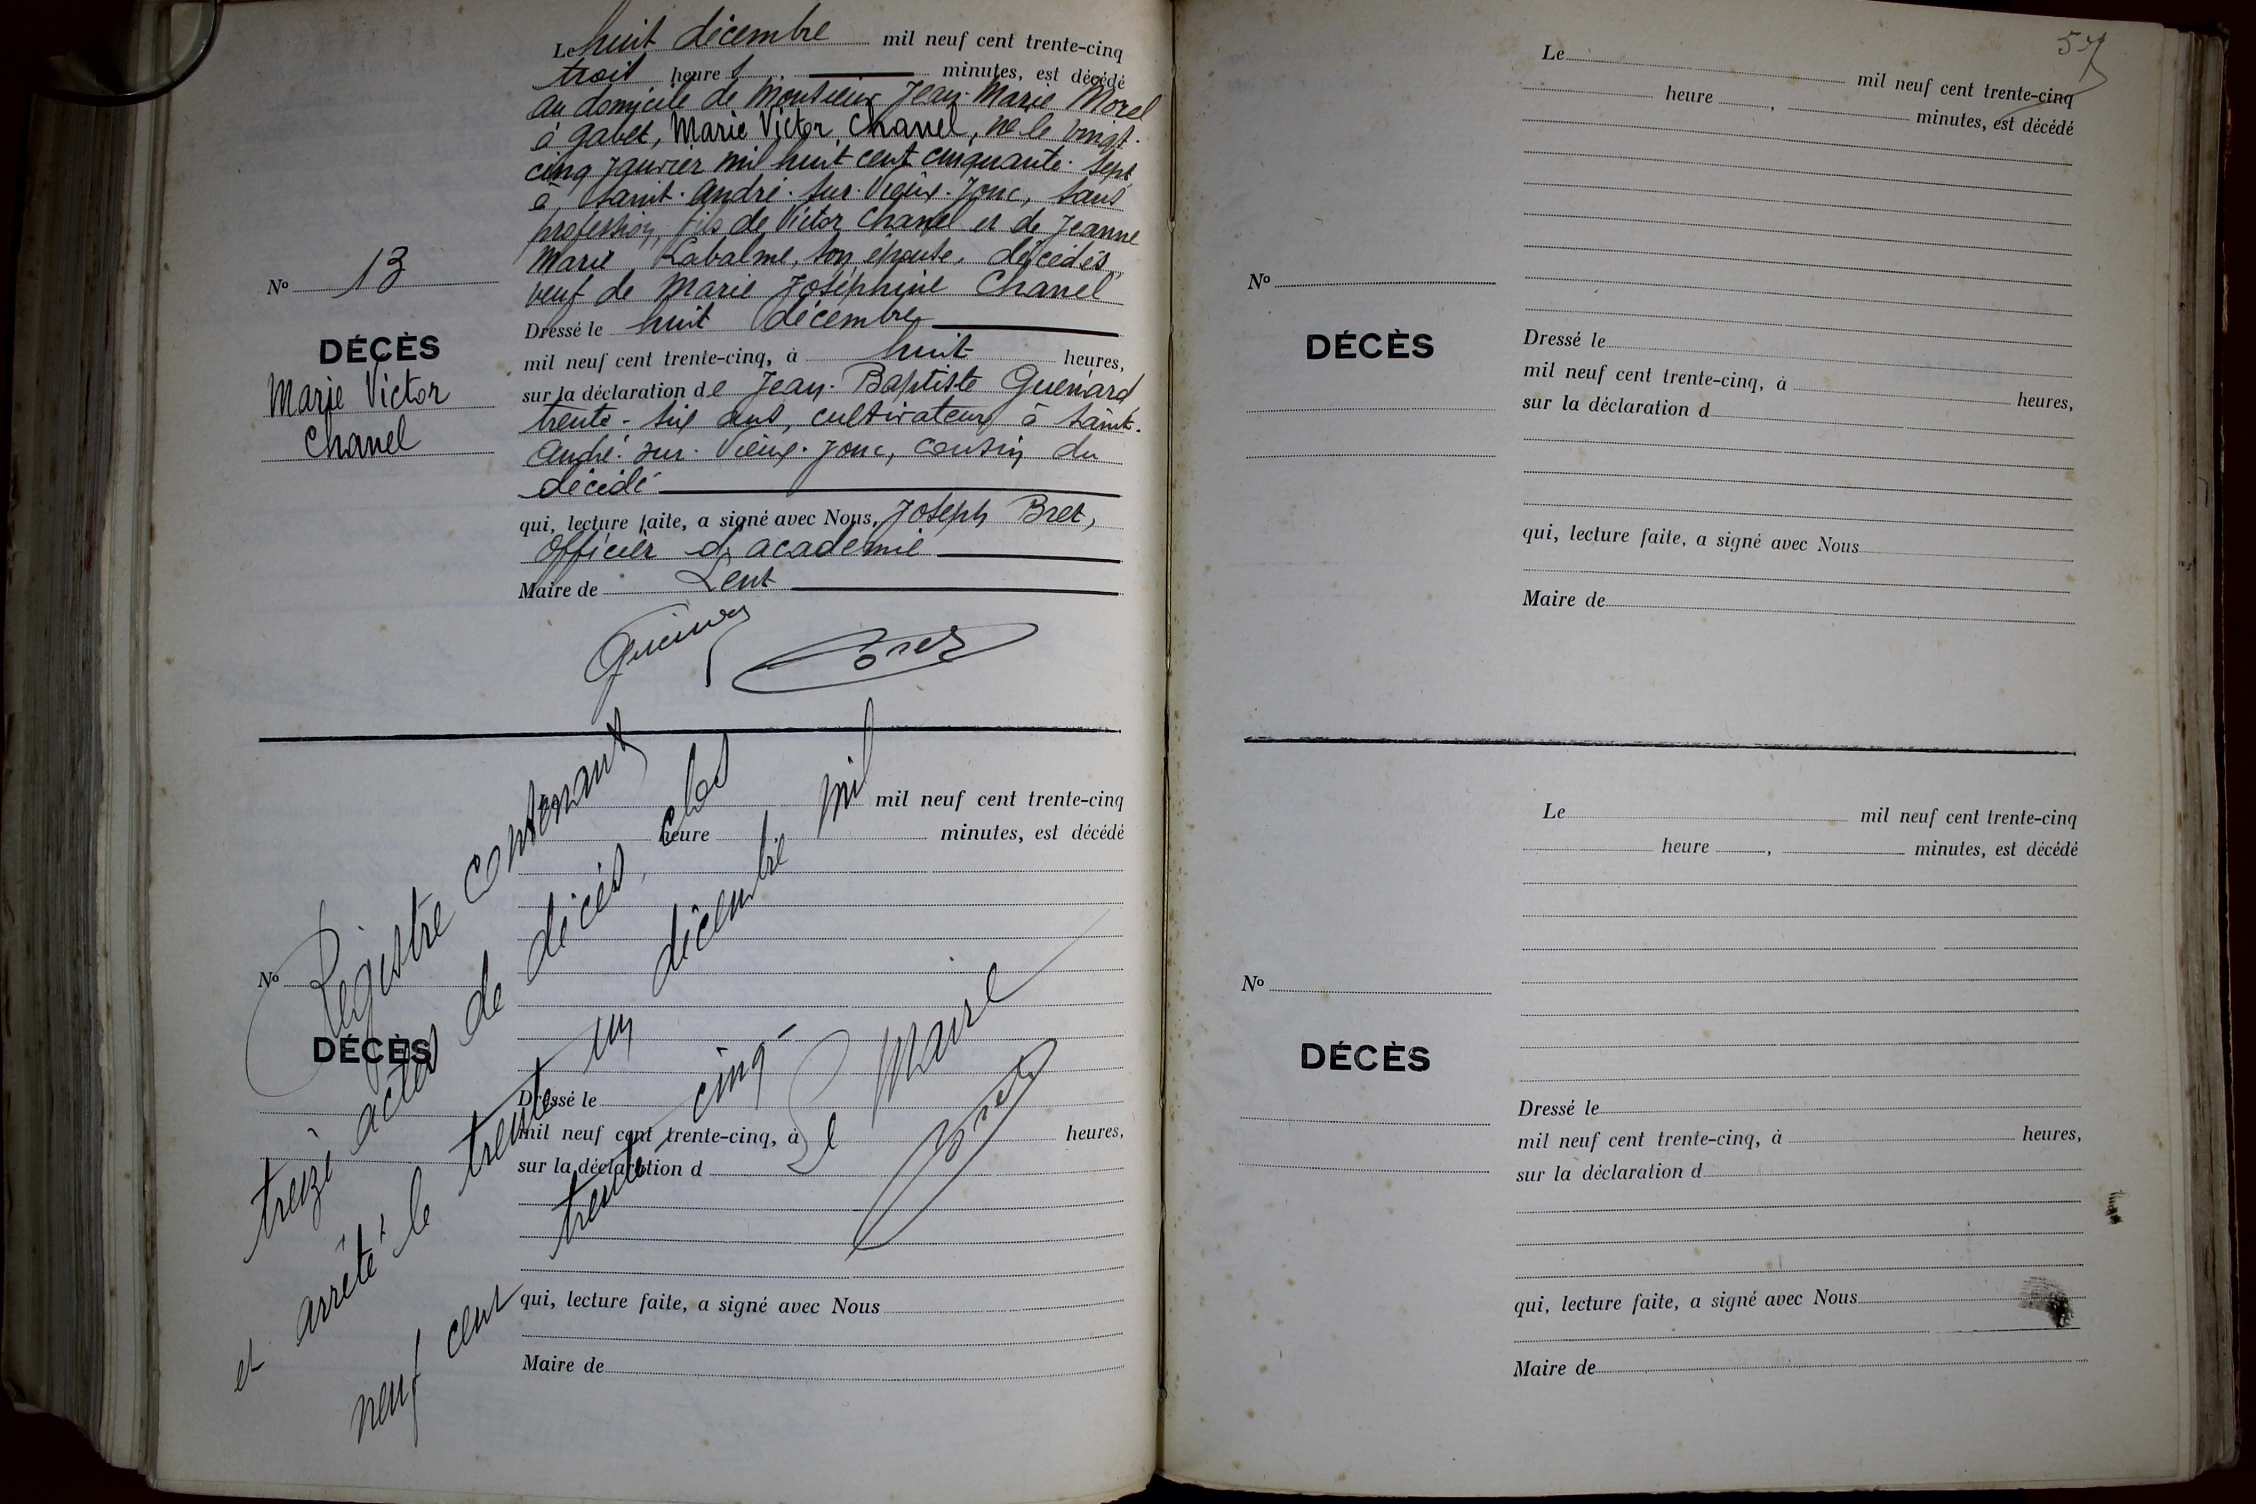 Le huit décembre mil neuf cent trente-cinq
trois heures minutes, est décédé
au domicile de Monsieur Jean-Marie Morel
à gabet, Marie Victor Chanel, né le vingt-
cinq Janvier mil huit cent cinquante-sept
à Saint-André-sur-Vieux-Jonc, sans
profession, fils de Victor Chanel et de Jeanne
Marie Labalme, son épouse, décédés,
veuf de Marie Joséphine Chanel
Nº 13
DÉCÈS
Marie Victor
Chanel
Dressé le huit décembre
mil neuf cent trente-cinq, à huit heures,
sur la déclaration de Jean-Baptiste Guénard,
trente-six ans, cultivateur à Saint-
André-sur-Vieux-Jonc, cousin du
décédé
qui, lecture faite, a signé avec Nous, Joseph Bret,
officier d'académie
Maire de Lent
Bret
Registre contenant
treize actes de décès, clos
et arrêté le trente un décembre mil
neuf cent trente-cinq
Le Maire
Bret
mil neuf cent trente-cinq
heure minutes, est décédé
Nº
DÉCÈS
Dressé le
mil neuf cent trente-cinq, à heures,
sur la déclaration d
qui, lecture faite, a signé avec Nous
Maire de
57
Le mil neuf cent trente-cinq
heure , minutes, est décédé
Nº
DÉCÈS
Dressé le
mil neuf cent trente-cinq, à heures,
sur la déclaration d
qui, lecture faite, a signé avec Nous
Maire de
Le mil neuf cent trente-cinq
heure , minutes, est décédé
Nº
DÉCÈS
Dressé le
mil neuf cent trente-cinq, à heures,
sur la déclaration d
qui, lecture faite, a signé avec Nous
Maire de